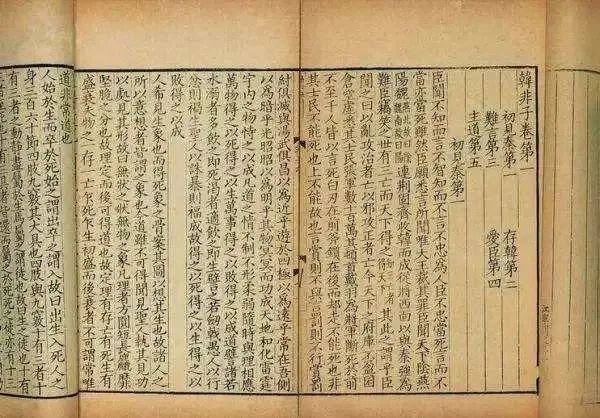 韓非子卷第一
初見秦第一　存韓第二
難言第三　愛臣第四
主道第五
初見秦第一
臣聞不知而言不智知而不言不忠為人臣不忠當死言而不
當亦當死雖然臣願悉言所聞唯大王裁其罪臣聞天下陰燕
陽魏連荆固齊收韓而成從將西面以與秦強為
難臣竊笑之世有三亡而天下得之其此之謂乎臣
聞之曰以亂攻治者亡以邪攻正者亡今天下之府庫不盈囷
倉空虛悉其士民張軍數十百萬其頓首戴羽為將軍斷死於前
不至千人皆以言死白刃在前斧鑕在後而却走不能死也非
其士民不能死也上不能故也言賞則不與言罰則不行賞罰
紂俱滅與湯武俱昌以為近乎遊於四極以為遠乎常在吾側
以為暗乎其光昭昭以為明乎其物冥冥而功成天地和化雷霆
宇內之物恃之以成凡道之情不制不形柔弱隨時與理相應
萬物得之以死得之以生萬事得之以敗得之以成道譬諸若
水溺者多飲之即死渴者適飲之即生譬之若劍戟愚人以行
忿則禍生聖人以誅暴則福成故得之以死得之以生得之以
敗得之以成
人希見生象也而得死象之骨案其圖以想其生也故諸人之
所以意想者皆謂之象也今道雖不可得聞見聖人執其見功
以處見其形故曰無狀之狀無物之象凡理者方圓短長麤靡
堅脆之分也故理定而後可得道也故定理有存亡有死生有
盛衰夫物之一存一亡乍死乍生初盛而後衰者不可謂常唯
道非常道也
人始於生而卒於死始之謂出卒之謂入故曰出生入死人之
身三百六十節四肢九竅其大具也四肢與九竅十有三者十
有三者之動靜盡屬於生焉屬之謂徒也故曰生之徒也十有